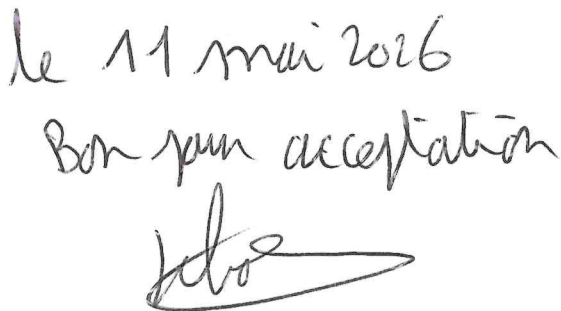 le 11 mai 2026
Bon pour acceptation